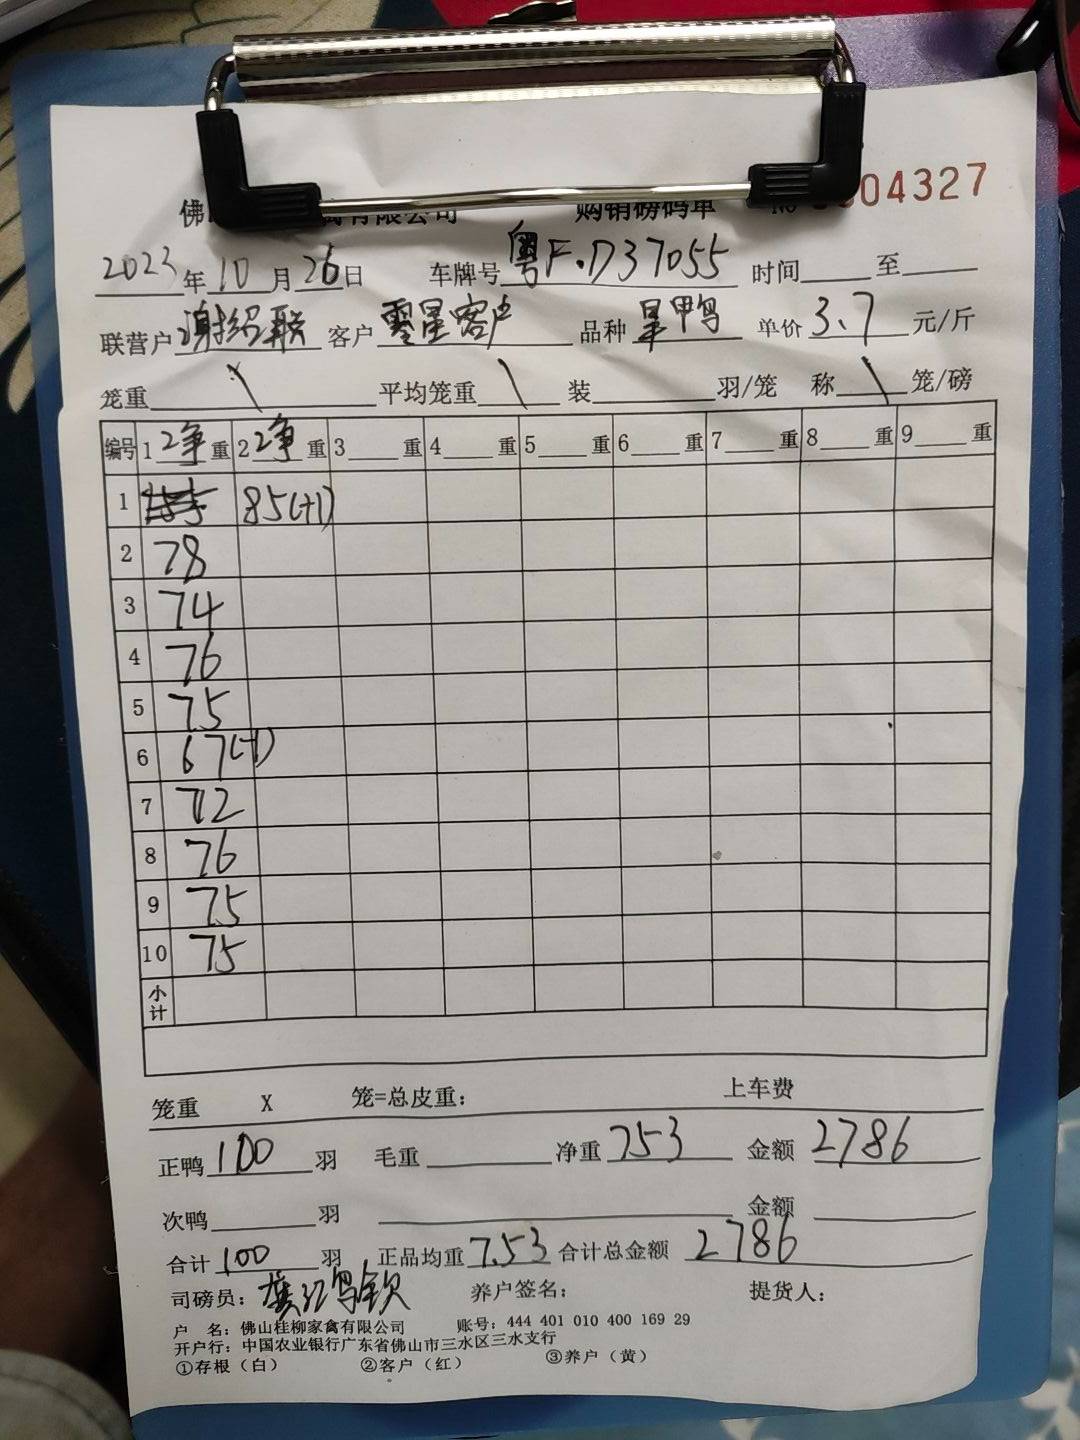 佛 禽有限公司 购销磅码单 No 04327
2023年10月26日 车牌号粤F.D37055 时间 至
联营户谢绍联 客户零星客户 品种 鸭 单价3.7元/斤
笼重\ 平均笼重\ 装 羽/笼 称\笼/磅
编号 1净重 2净重 3重 4重 5重 6重 7重 8重 9重
1 85(+1)
2 78
3 74
4 76
5 75
6 67(-1)
7 72
8 76
9 75
10 75
小计
笼重 X 笼=总皮重: 上车费
正鸭100羽 毛重 净重753 金额2786
次鸭 羽 金额
合计100羽 正品均重7.53 合计总金额2786
司磅员: 养户签名: 提货人:
户 名: 佛山桂柳家禽有限公司 账号: 444 401 010 400 169 29
开户行: 中国农业银行广东省佛山市三水区三水支行
①存根(白) ②客户(红) ③养户(黄)